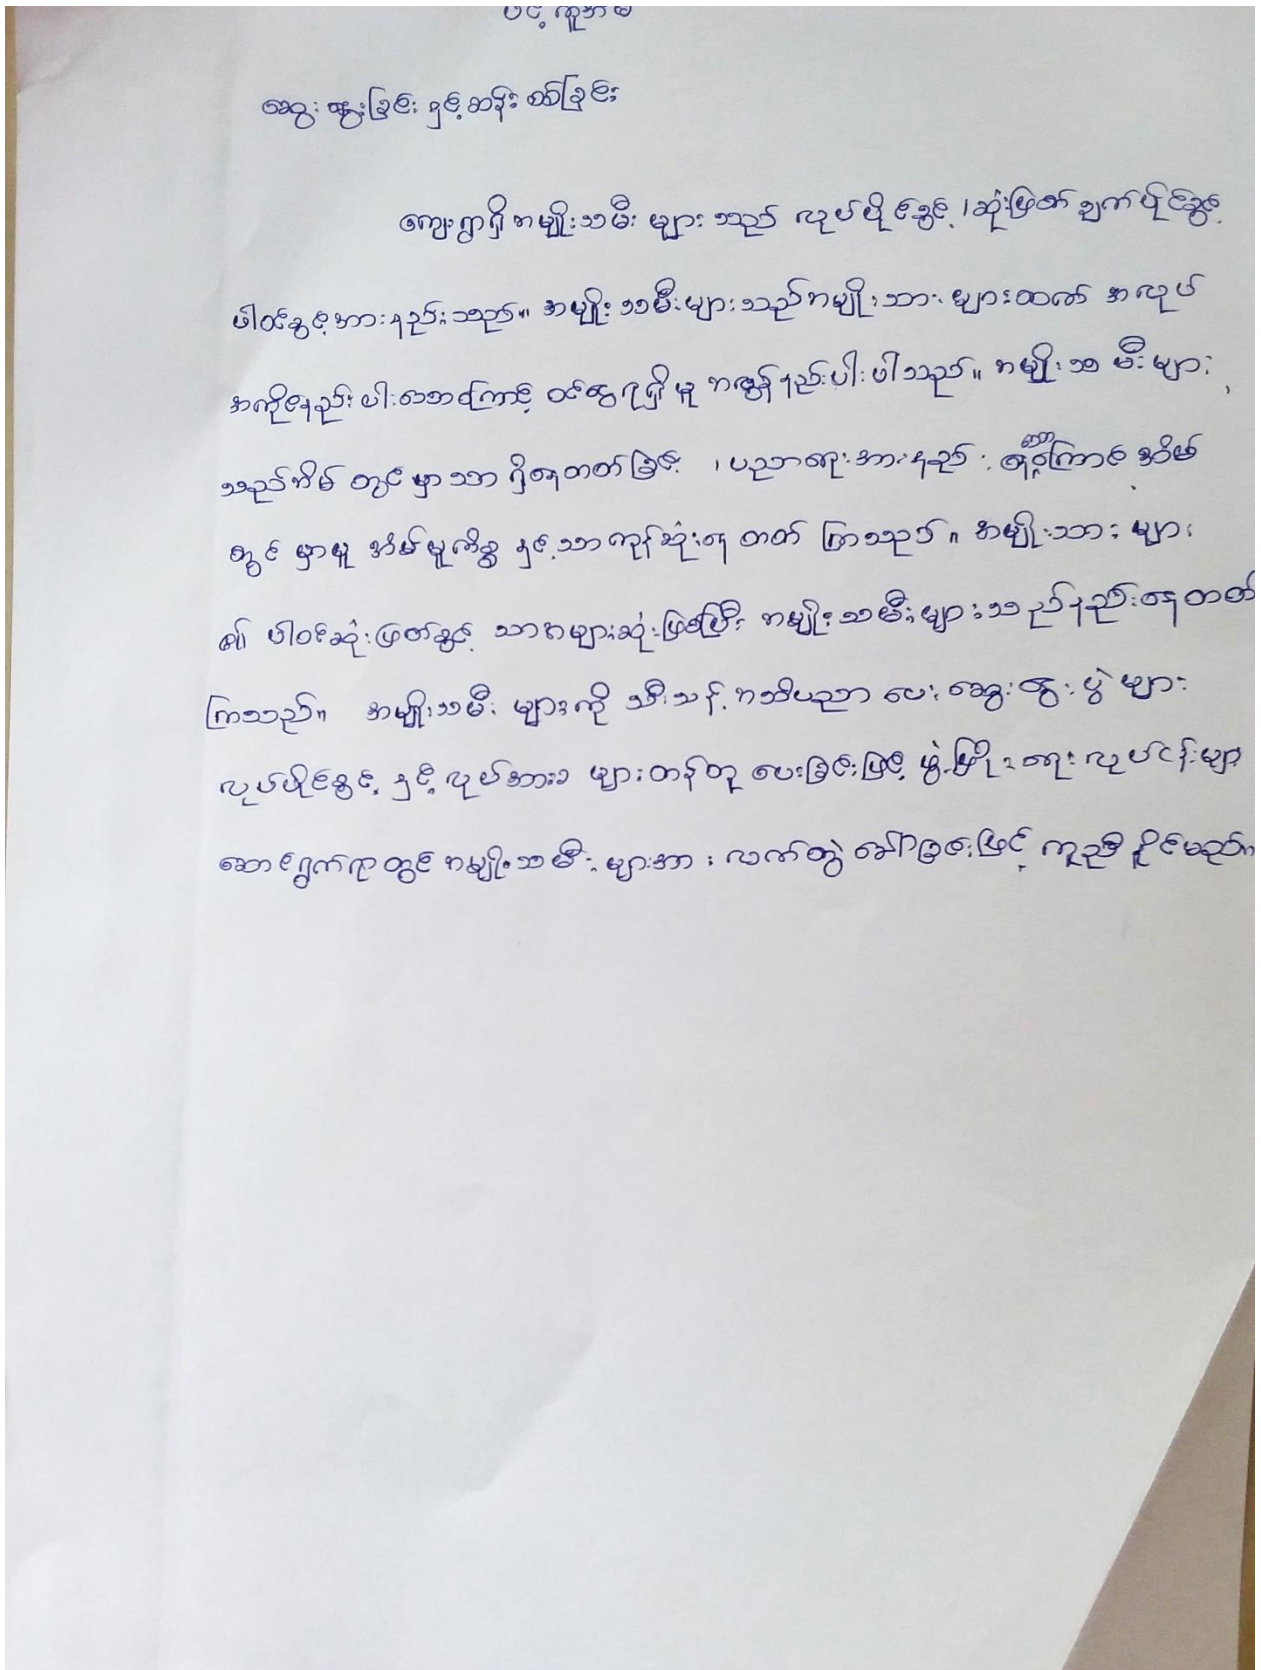 ဆွေးနွေးခြင်း နှင့်ဆန်းစစ်ခြင်း
ကျေးရွာရှိအမျိုးသမီး များ သည် လုပ်ပိုင်ခွင့် ၊ဆုံးဖြတ် ချက်ပိုင်ခွင့်
ပါဝင်ခွင့်အားနည်းသည်။ အမျိုးသမီးများသည်အမျိုးသားများထက် အလုပ်
အကိုင်နည်းပါးသောကြောင့် ဝင်ငွေရရှိမှု အလွန်နည်းပါးပါသည်။ အမျိုးသမီးများ
သည်အိမ် တွင် မှာသာ ရှိနေတတ်ခြင်း ၊ပညာရေးအားနည်း သောကြောင့် အိမ်
တွင် မှာမူ အိမ်မှုကိစ္စ နှင့်သာကုန်ဆုံးနေ တတ် ကြသည်။ အမျိုးသား များ
၏ ပါဝင်ဆုံးဖြတ်ခွင့် သာအများဆုံးဖြစ်ပြီး အမျိုးသမီးများသည်နည်းနေတတ်
ကြသည်။ အမျိုးသမီး များကို သီးသန့် အသိပညာ ပေး ဆွေးနွေး ပွဲ များ
လုပ်ပိုင်ခွင့် နှင့် လုပ်အားခ များတန်တူ ပေးခြင်းဖြင့် ဖွံ့ဖြိုးရေး လုပ်ငန်းများ
ဆောင်ရွက်ရာတွင် အမျိုးသမီးများအား လက်တွဲ ခေါ်ခြင်းဖြင့် ကူညီနိုင်မည်။